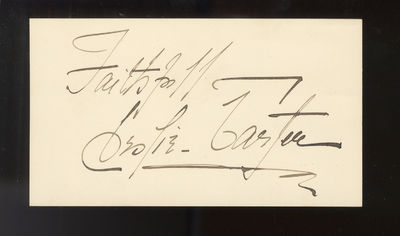 Faithfull
Leslie Carter